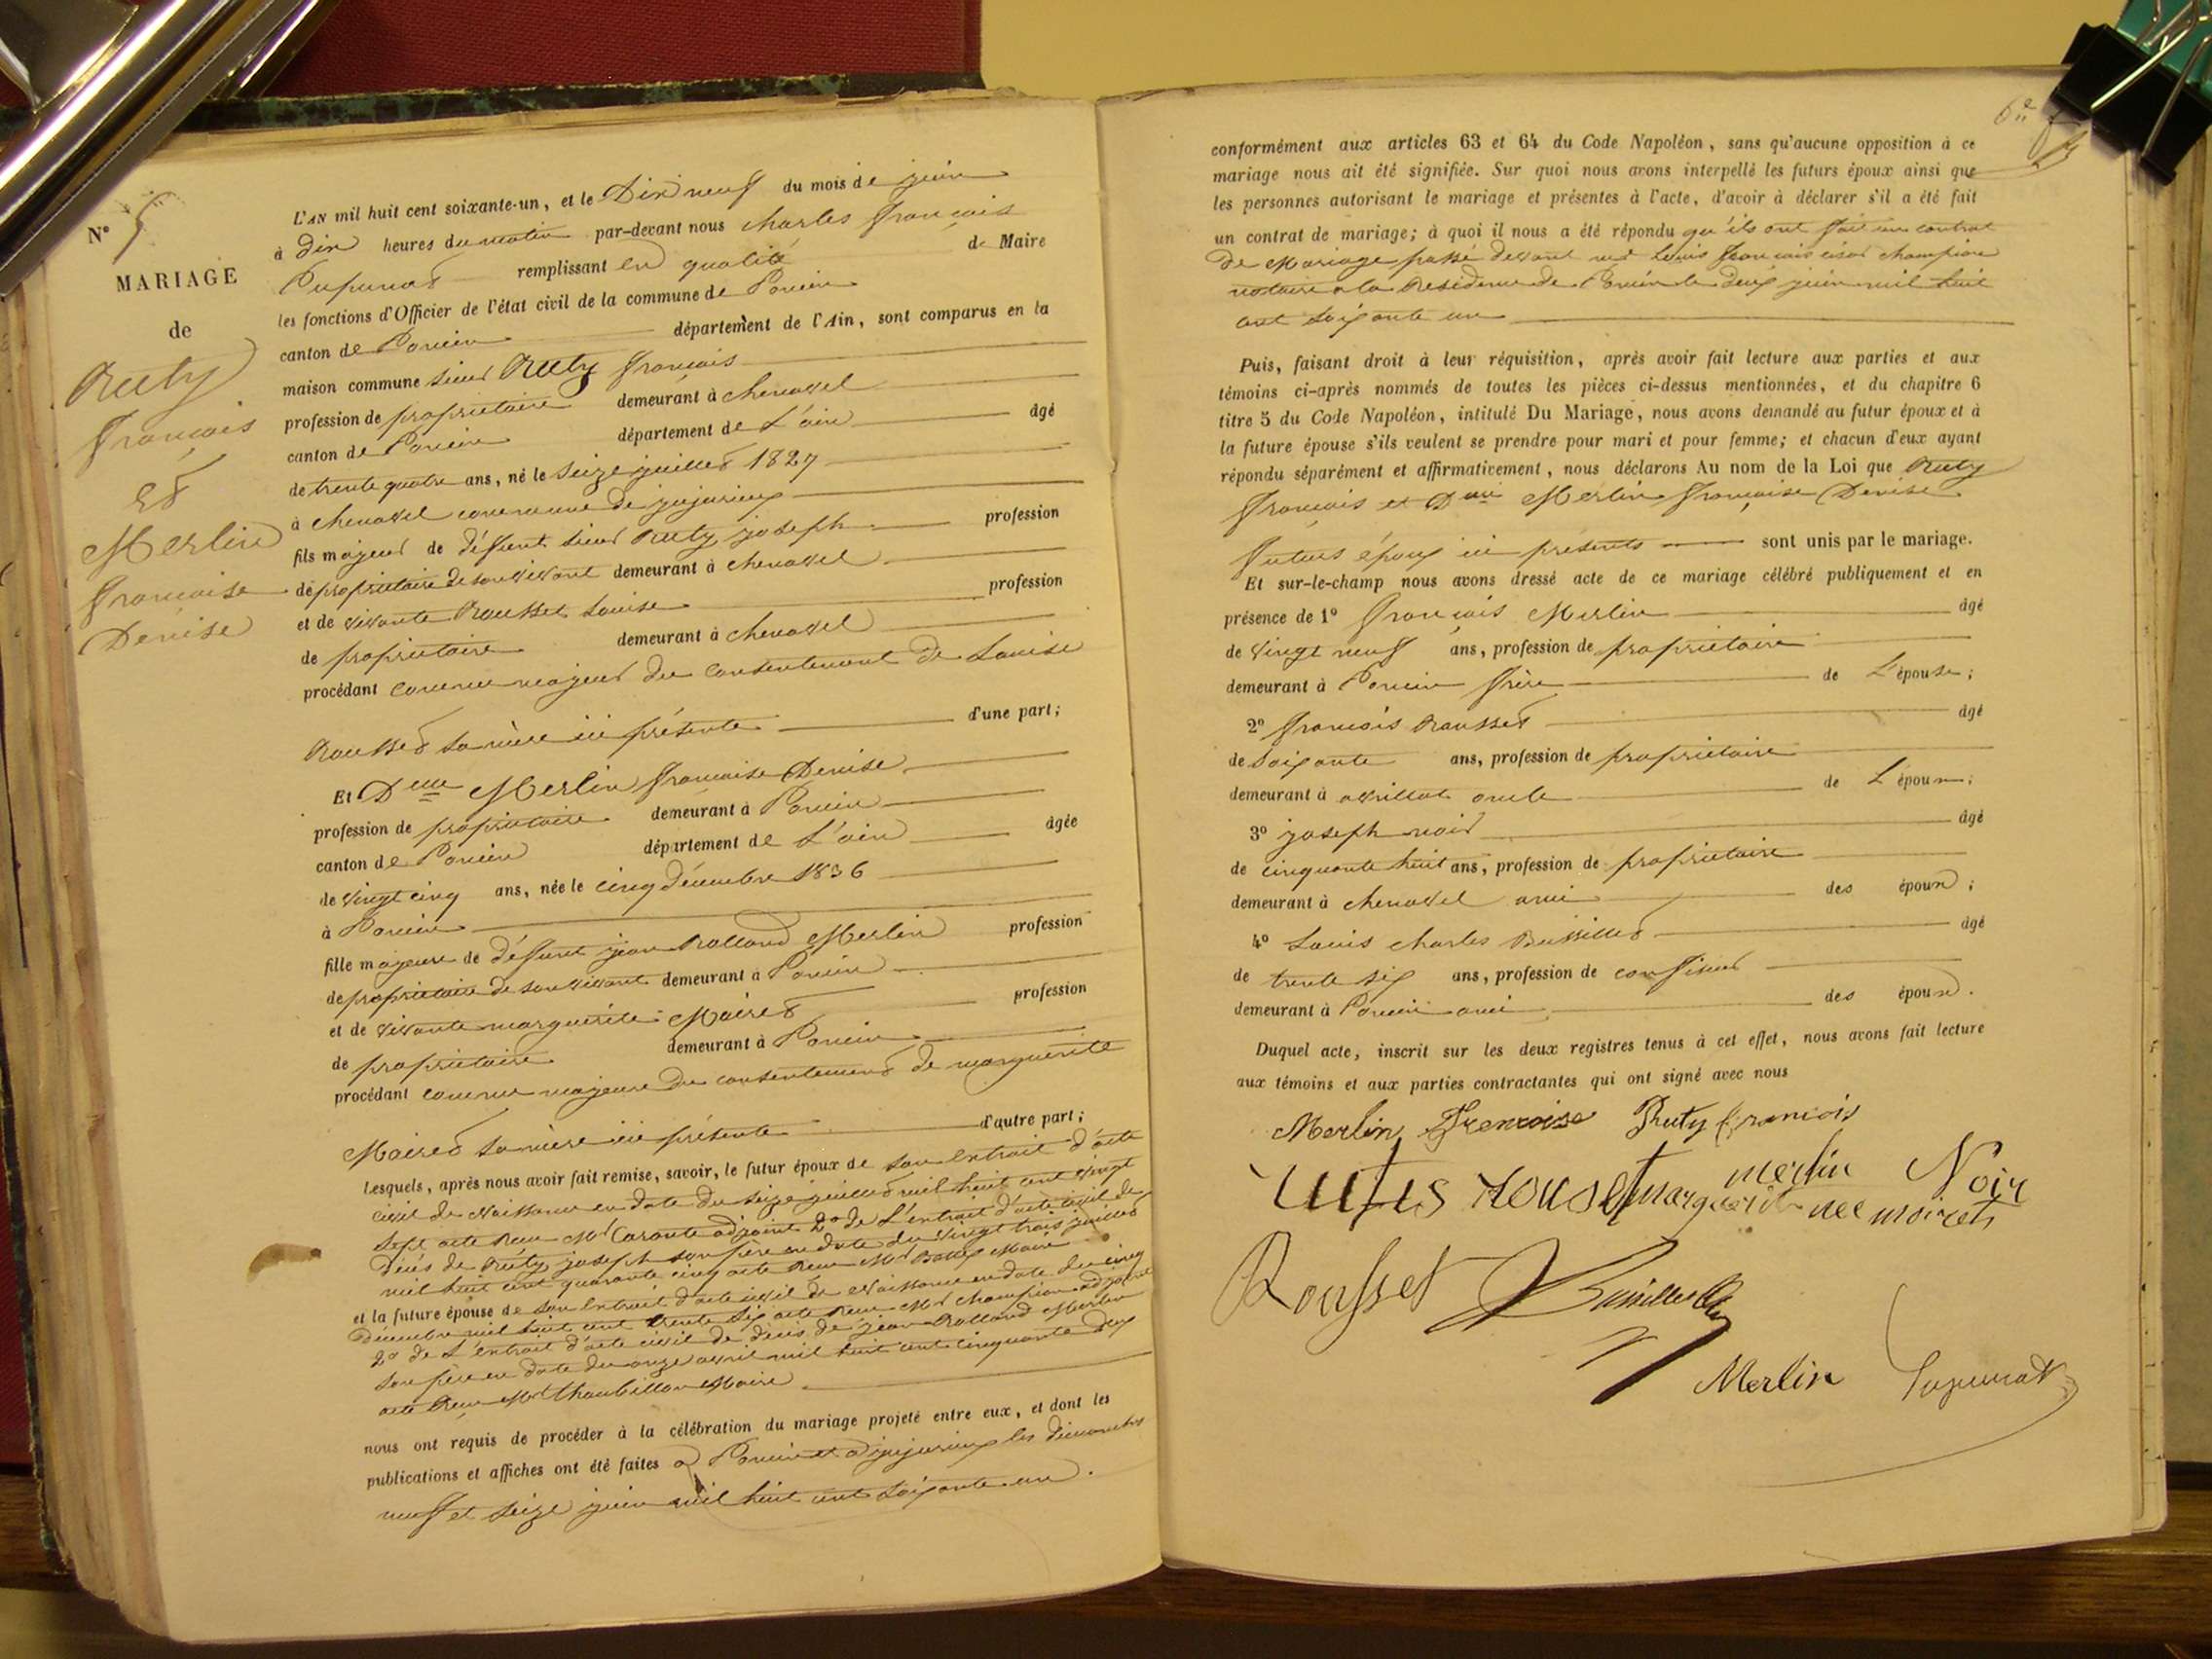 N° 5
MARIAGE
de
Ruty
François
Et
Merlin
Françoise
Denise
L'AN mil huit cent soixante-un, et le Dix neuf du mois de juin
à dix heures du matin par-devant nous charles françois
Pupunat remplissant en qualité de Maire
les fonctions d'Officier de l'état civil de la commune de Poncin
canton de Poncin département de l'Ain, sont comparus en la
maison commune sieur Ruty françois
profession de propriétaire demeurant à chenavel
canton de Poncin département de L'ain âgé
de trente quatre ans, né le seize juillet 1827
à chenavel commune de jujurieux
fils majeur de défunt sieur Ruty joseph profession
de propriétaire de son vivant demeurant à chenavel
et de vivante Rousset Louise profession
de propriétaire demeurant à chenavel
procédant comme majeur du consentement de Louise
Rousset sa mère ici présente d'une part;
Et Delle Merlin françoise Denise
profession de propriétaire demeurant à Poncin
canton de Poncin département de L'ain âgée
de vingt cinq ans, née le cinq décembre 1836
à Poncin
fille majeure de défunt jean Rolland Merlin profession
de propriétaire de son vivant demeurant à Poncin
et de vivante marguerite Moiret profession
de propriétaire demeurant à Poncin
procédant comme majeure du consentement de marguerite
Moiret sa mère ici présente d'autre part;
Lesquels, après nous avoir fait remise, savoir, le futur époux de son Extrait d'acte
civil de Naissance en date du seize juillet mil huit cent vingt
sept acte Reçu Mr adjoint 2° de L'extrait d'acte civil de
décès de Ruty joseph son père en date du vingt trois juillet
mil huit cent quarante cinq acte Reçu Mr Maire
et la future épouse de son Extrait d'acte civil de Naissance en date du cinq
décembre mil huit cent trente six acte Reçu Mr Champion adjoint
2° de L'extrait d'acte civil de décès de jean Rolland Merlin
son père en date du onze avril mil huit cent cinquante deux
acte Reçu Mr Maire
nous ont requis de procéder à la célébration du mariage projeté entre eux, et dont les
publications et affiches ont été faites a Poncin et a jujurieux les dimanches
neuf et seize juin mil huit cent soixante un.
6e
conformément aux articles 63 et 64 du Code Napoléon, sans qu'aucune opposition à ce
mariage nous ait été signifiée. Sur quoi nous avons interpellé les futurs époux ainsi que
les personnes autorisant le mariage et présentes à l'acte, d'avoir à déclarer s'il a été fait
un contrat de mariage; à quoi il nous a été répondu qu'ils ont fait un contrat
de Mariage passé devant me Louis françois césar champion
notaire a la Résidence de Poncin le deux juin mil huit
cent soixante un
Puis, faisant droit à leur réquisition, après avoir fait lecture aux parties et aux
témoins ci-après nommés de toutes les pièces ci-dessus mentionnées, et du chapitre 6
titre 5 du Code Napoléon, intitulé Du Mariage, nous avons demandé au futur époux et à
la future épouse s'ils veulent se prendre pour mari et pour femme; et chacun d'eux ayant
répondu séparément et affirmativement, nous déclarons Au nom de la Loi que Ruty
François et Delle Merlin Françoise Denise
Futurs époux ici présents sont unis par le mariage.
Et sur-le-champ nous avons dressé acte de ce mariage célébré publiquement et en
présence de 1° François Merlin âgé
de vingt neuf ans, profession de propriétaire
demeurant à Poncin frère de L'épouse;
2° François Rousset âgé
de soixante ans, profession de propriétaire
demeurant à oncle de L'époux;
3° joseph noir âgé
de cinquante huit ans, profession de propriétaire
demeurant à chenavel ami des époux;
4° Louis charles Bussillet âgé
de trente six ans, profession de confiseur
demeurant à Poncin ami des époux.
Duquel acte, inscrit sur les deux registres tenus à cet effet, nous avons fait lecture
aux témoins et aux parties contractantes qui ont signé avec nous
Merlin Frençoise Ruty François
rouset marguerit merlin Noir
nee moiret
Rousset Bussillet
Merlin Pupunat